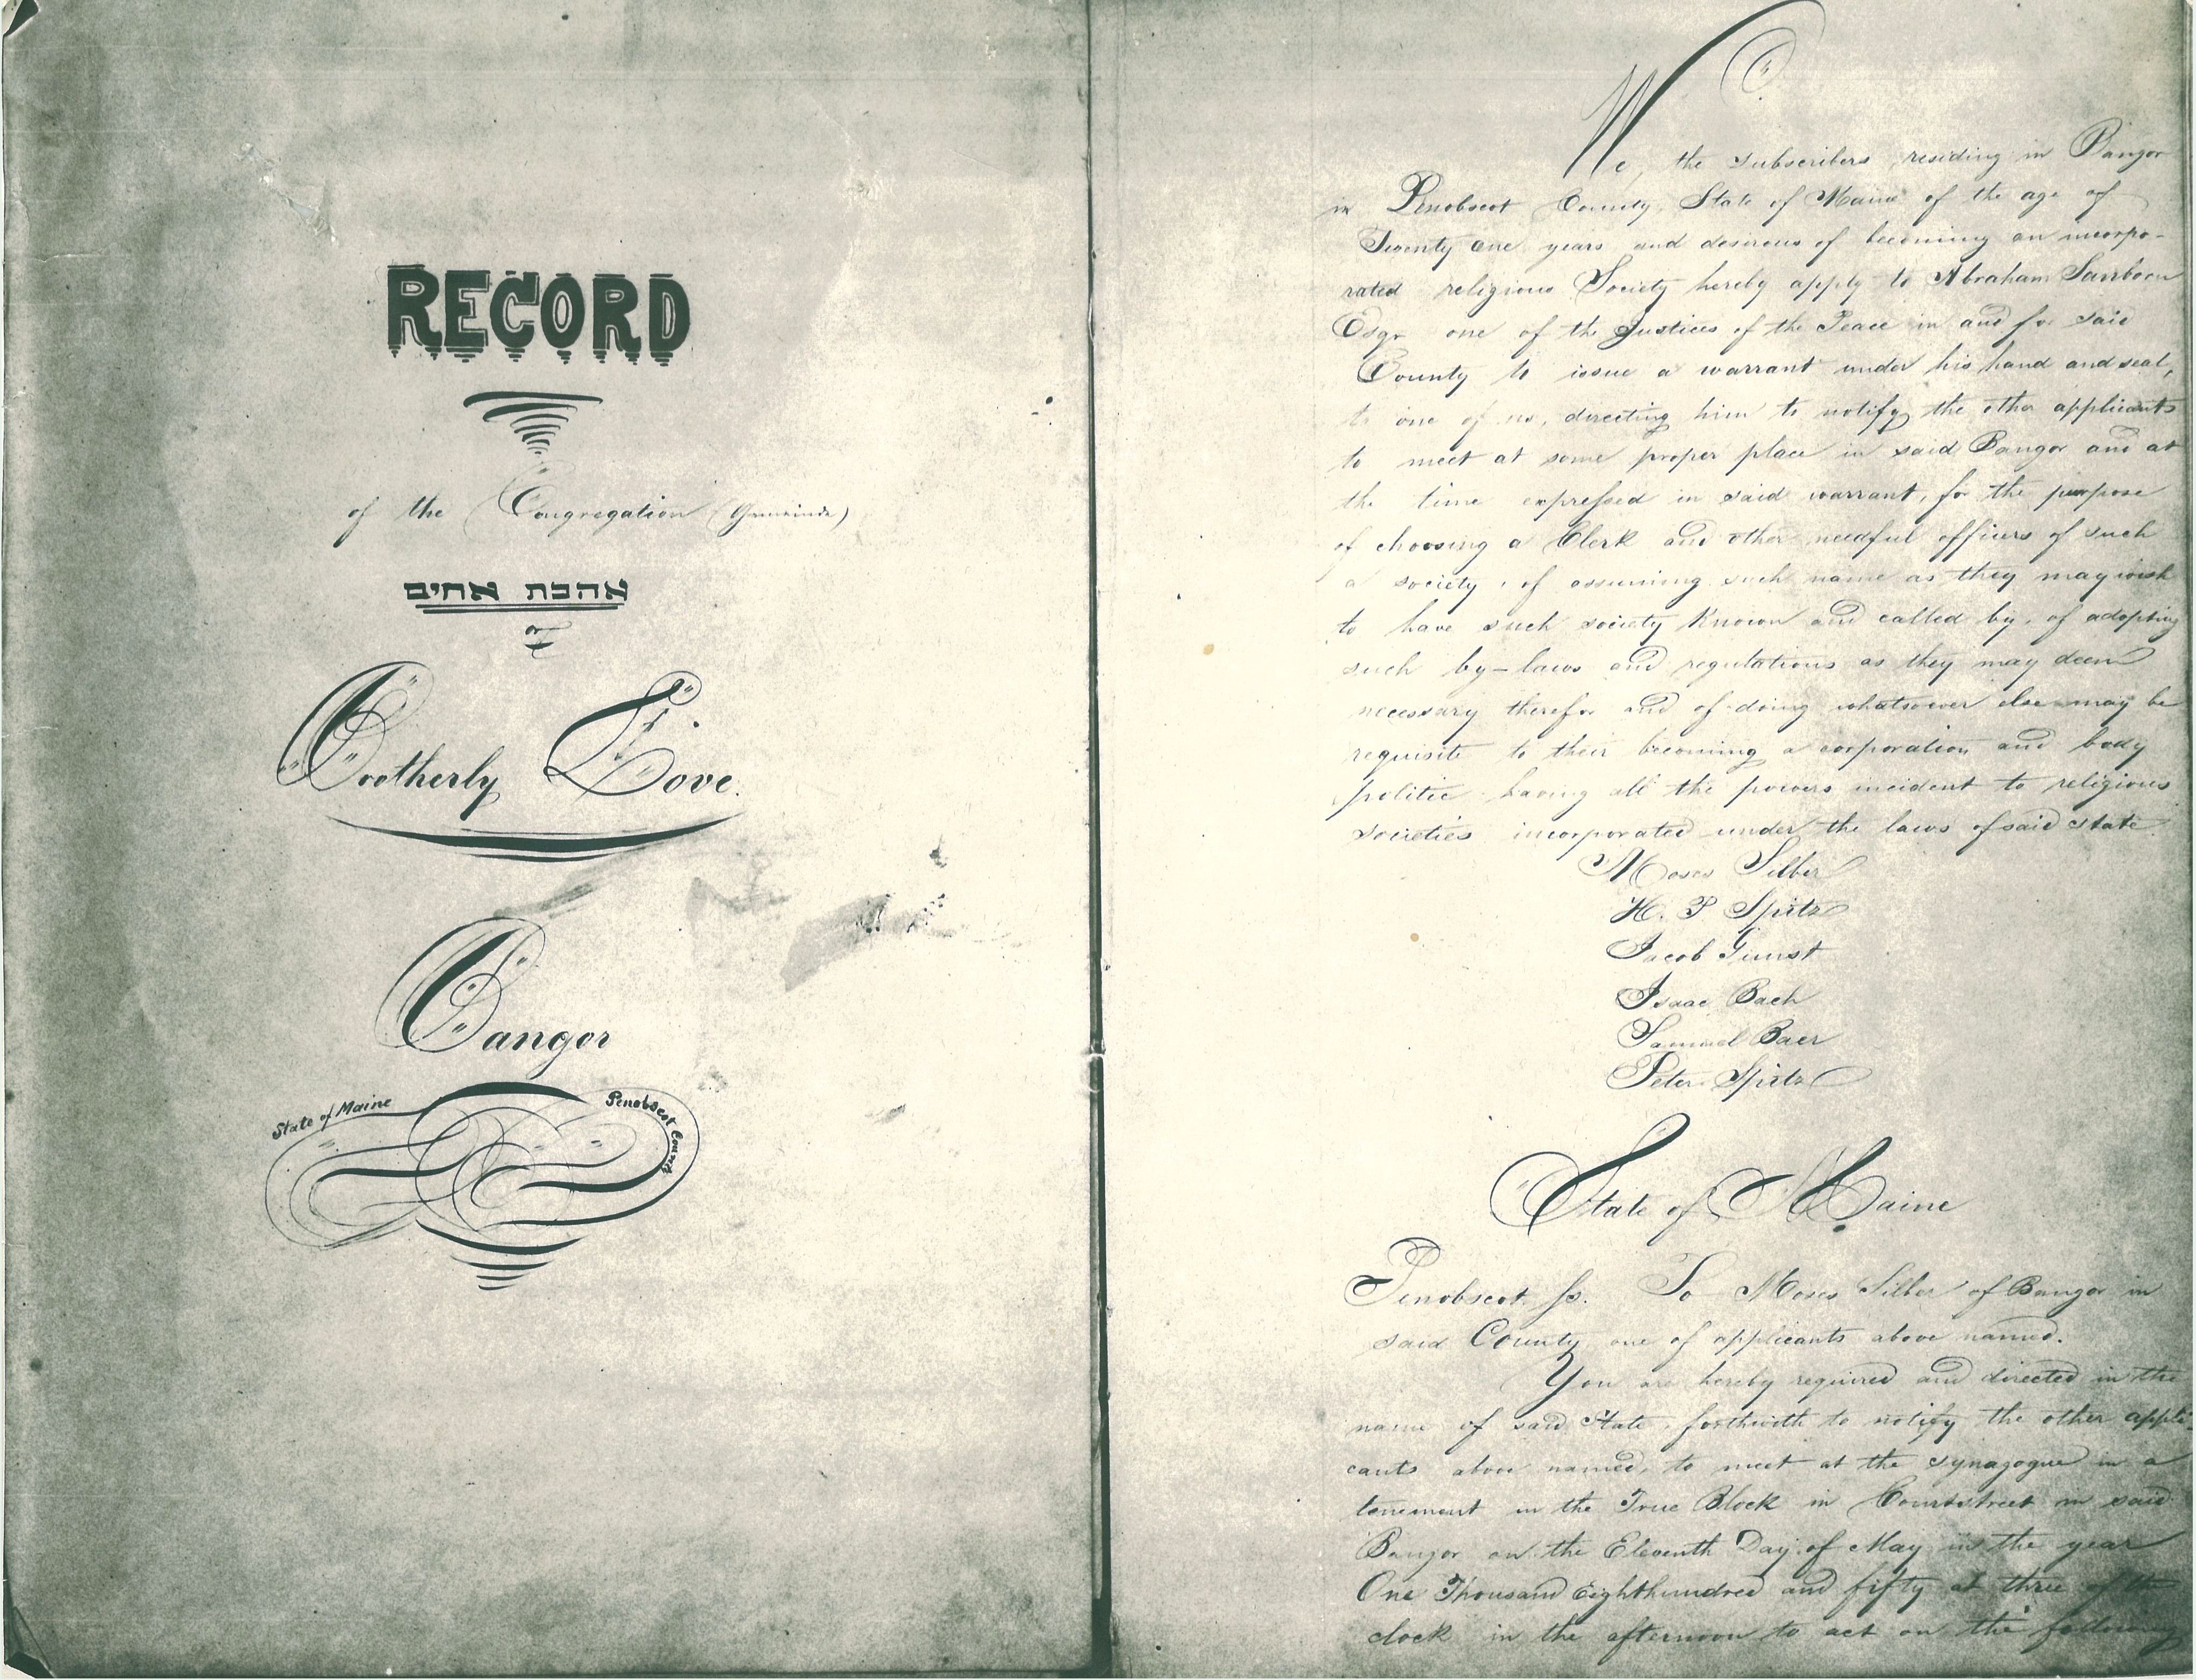 RECORD
of the Congregation (Gemeinde)
אהבת אחים
or
Brotherly Love.
Bangor
State of Maine
Penobscot County
We, the subscribers residing in Bangor
in Penobscot County, State of Maine of the age of
Twenty one years and desirous of becoming an incorpo-
rated religious Society hereby apply to Abraham Sanborn
Esqr one of the Justices of the Peace in and for said
County to issue a warrant under his hand and seal,
to one of us, directing him to notify the other applicants
to meet at some proper place in said Bangor and at
the time expressed in said warrant, for the purpose
of choosing a Clerk and other needful officers of such
a society, of assuming such name as they may wish
to have such society known and called by, of adopting
such by-laws and regulations as they may deem
necessary therefor and of doing whatsoever else may be
requisite to their becoming a corporation and body
politic having all the powers incident to religious
societies incorporated under the laws of said state.
Moses Silber
H. P Spitz
Jacob Gunst
Isaac Bach
Samuel Baer
Peter Spitz
State of Maine
Penobscot ss. To Moses Silber of Bangor in
said County one of applicants above named.
You are hereby required and directed in the
name of said State, forthwith to notify the other appli-
cants above named, to meet at the synagogue in a
tenement in the True Block in Courtstreet in said
Bangor on the Eleventh Day of May in the year
One Thousand Eighthundred and fifty at three of the
clock in the afternoon to act on the following